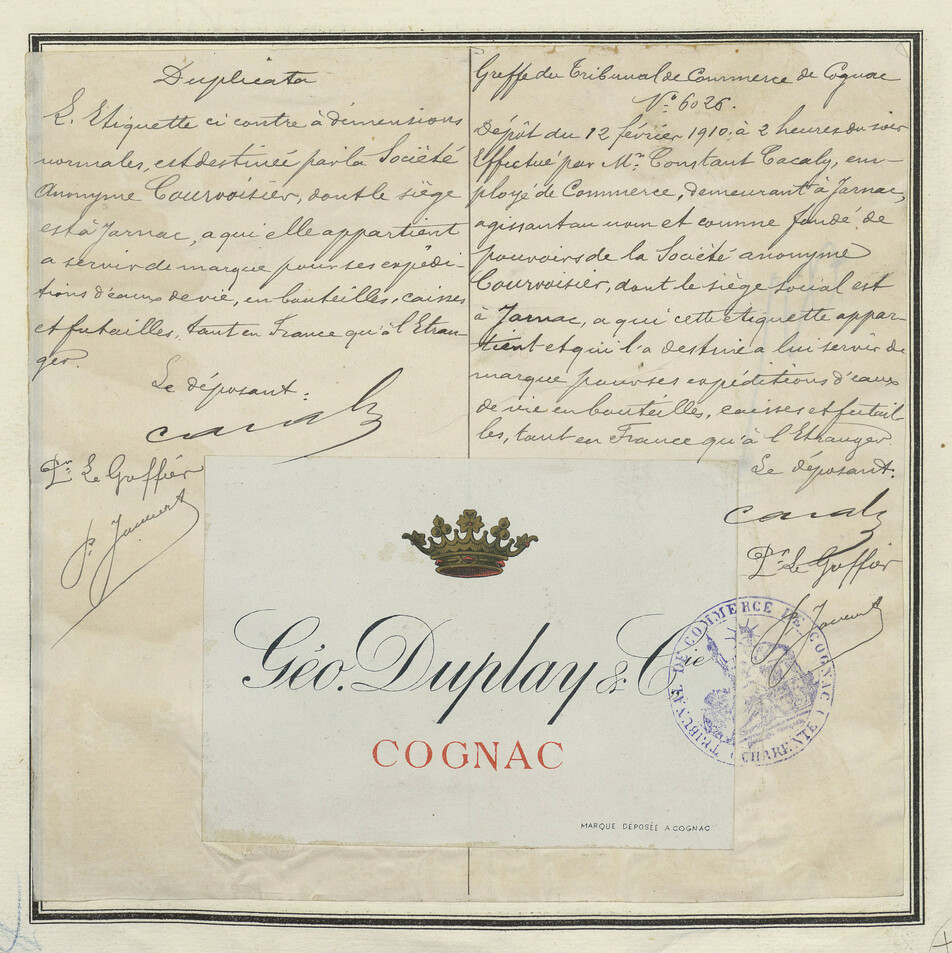 Duplicata
L'Etiquette ci contre à dimensions
normales, est destinée par la Société
Anonyme Courvoisier, dont le siège
est à Jarnac, a qui elle appartient
a servir de marque pour ses expédi-
tions d'eaux de vie, en bouteilles, caisses
et futailles, tant en France qu'à l'Etran-
ger.
Le déposant:
Cacaly
Pr. Le Greffier
Greffe du Tribunal de Commerce de Cognac
No. 6026.
Dépôt du 12 février 1910 à 2 heures du soir
Effectué par Mr. Constant Cacaly, em-
ployé de Commerce, demeurant à Jarnac,
agissant au nom et comme fondé de
pouvoirs de la Société anonyme
Courvoisier, dont le siège social est
à Jarnac, a qui cette étiquette appar-
tient et qui l'a destinée a lui servir de
marque pour ses expéditions d'eaux
de vie en bouteilles, caisses et futail-
les, tant en France qu'à l'Etranger.
Le déposant:
Cacaly
Pr. Le Greffier
Géo. Duplay & Cie
COGNAC
MARQUE DÉPOSÉE A COGNAC
TRIBUNAL DE COMMERCE DE COGNAC (CHARENTE)